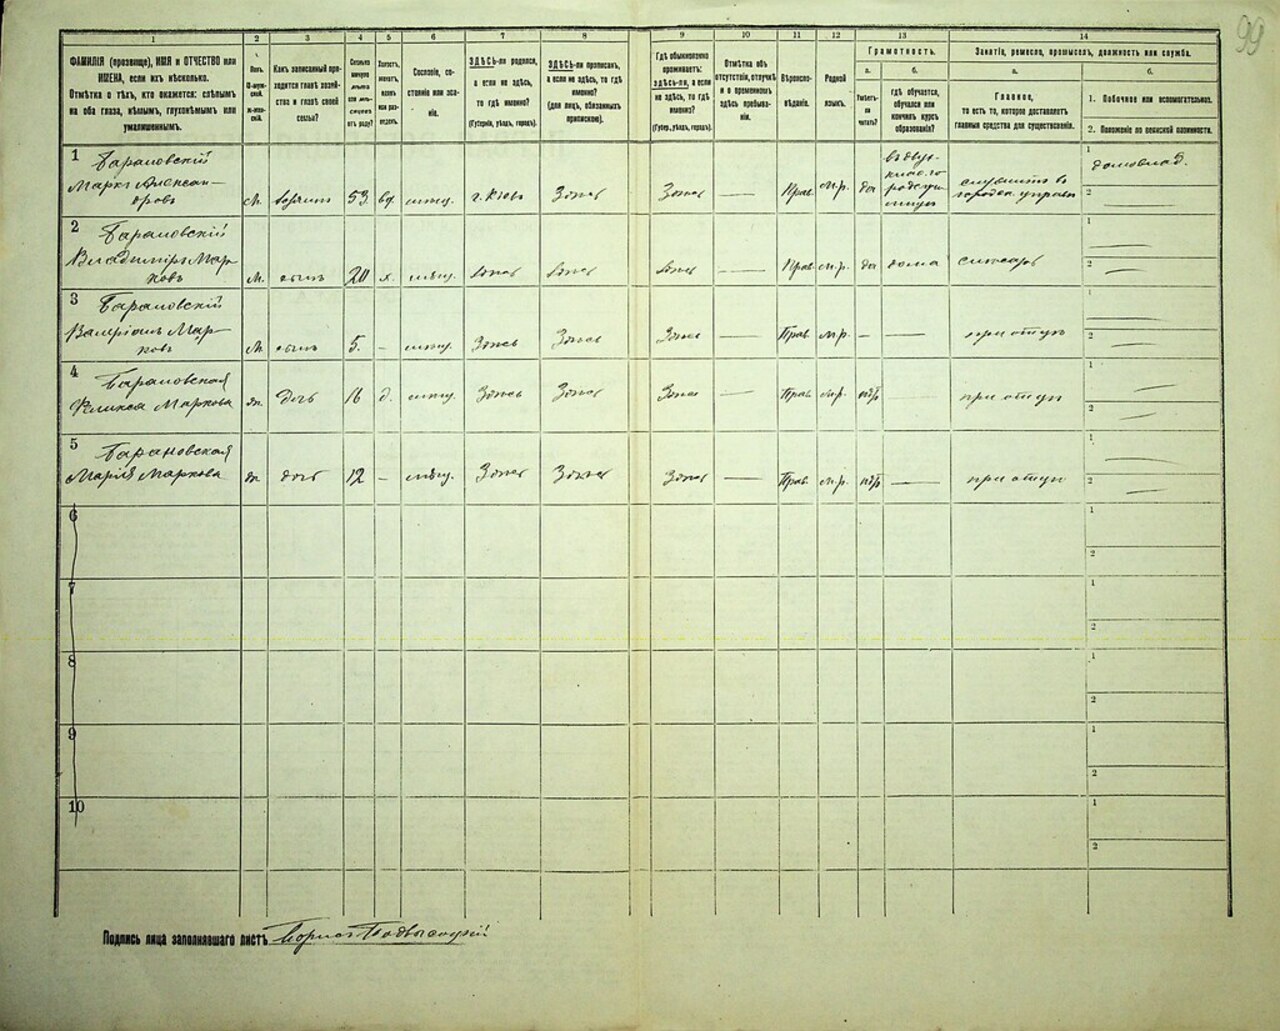 99
1
2
3
4
5
6
7
8
9
10
11
12
13
14
ФАМИЛІЯ (прозвище), ИМЯ и ОТЧЕСТВО или
ИМЕНА, если ихъ нѣсколько.
Отмѣтка о тѣхъ, кто окажется: слѣпымъ
на оба глаза, нѣмымъ, глухонѣмымъ или
умалишеннымъ.
Полъ.
М-мужской.
Ж-женскій.
Какъ записанный приходится
главѣ хозяйства
и главѣ своей
семьи?
Сколько
минуло
лѣтъ
или мѣсяцевъ
отъ роду?
Холостъ,
женатъ,
вдовъ
или разведенъ.
Сословіе, состояніе
или званіе.
ЗДѢСЬ-ли родился,
а если не здѣсь,
то гдѣ именно?
(Губернія, уѣздъ, городъ).
ЗДѢСЬ-ли приписанъ,
а если не здѣсь, то гдѣ
именно?
(для лицъ, обязанныхъ
припискою).
Гдѣ обыкновенно
проживаетъ:
здѣсь-ли, а если
не здѣсь, то гдѣ
именно?
(Губер., уѣздъ, городъ).
Отмѣтка объ
отсутствіи, отлучкѣ
и о временномъ
здѣсь пребываніи.
Вѣроисповѣданіе.
Родной
языкъ.
Грамотность.
а.
Умѣетъ-ли
читать?
б.
гдѣ обучается,
обучался или
кончилъ курсъ
образованія?
Занятіе, ремесло, промыселъ, должность или служба.
а.
Главное,
то есть то, которое доставляетъ
главныя средства для существованія.
б.
1. Побочное или вспомогательное.
2. Положеніе по воинской повинности.
1 Барановскій
Маркъ Александровъ
М. хозяинъ 53 вд. мѣщ. г. Кіевъ Здѣсь Здѣсь — Прав. м.р. да въ двухклас. городскомъ училищѣ служитъ въ городск. управѣ
1 домовлад.
2 —
2 Барановскій
Владиміръ Марковъ
М. сынъ 20 х. мѣщ. Здѣсь Здѣсь Здѣсь — Прав. м.р. да дома слесарь
1 —
2 —
3 Барановскій
Валеріанъ Марковъ
М. сынъ 5. – мѣщ. Здѣсь Здѣсь Здѣсь — Прав. м.р. – — при отцѣ
1 —
2 —
4 Барановская
Маркова
ж. дочь 16 д. мѣщ. Здѣсь Здѣсь Здѣсь — Прав. м.р. нѣтъ при отцѣ
1 —
2 —
5 Барановская
Марія Маркова
ж. дочь 12 – мѣщ. Здѣсь Здѣсь Здѣсь — Прав. м.р. нѣтъ — при отцѣ
1 —
2 —
6
1
2
7
1
2
8
1
2
9
1
2
10
1
2
Подпись лица заполнявшаго листъ Борисъ Подвысоцкій